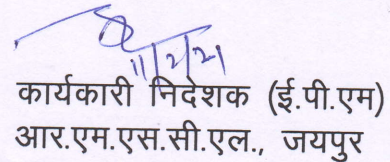 11/2/21
कार्यकारी निदेशक (ई.पी.एम)
आर.एम.एस.सी.एल., जयपुर